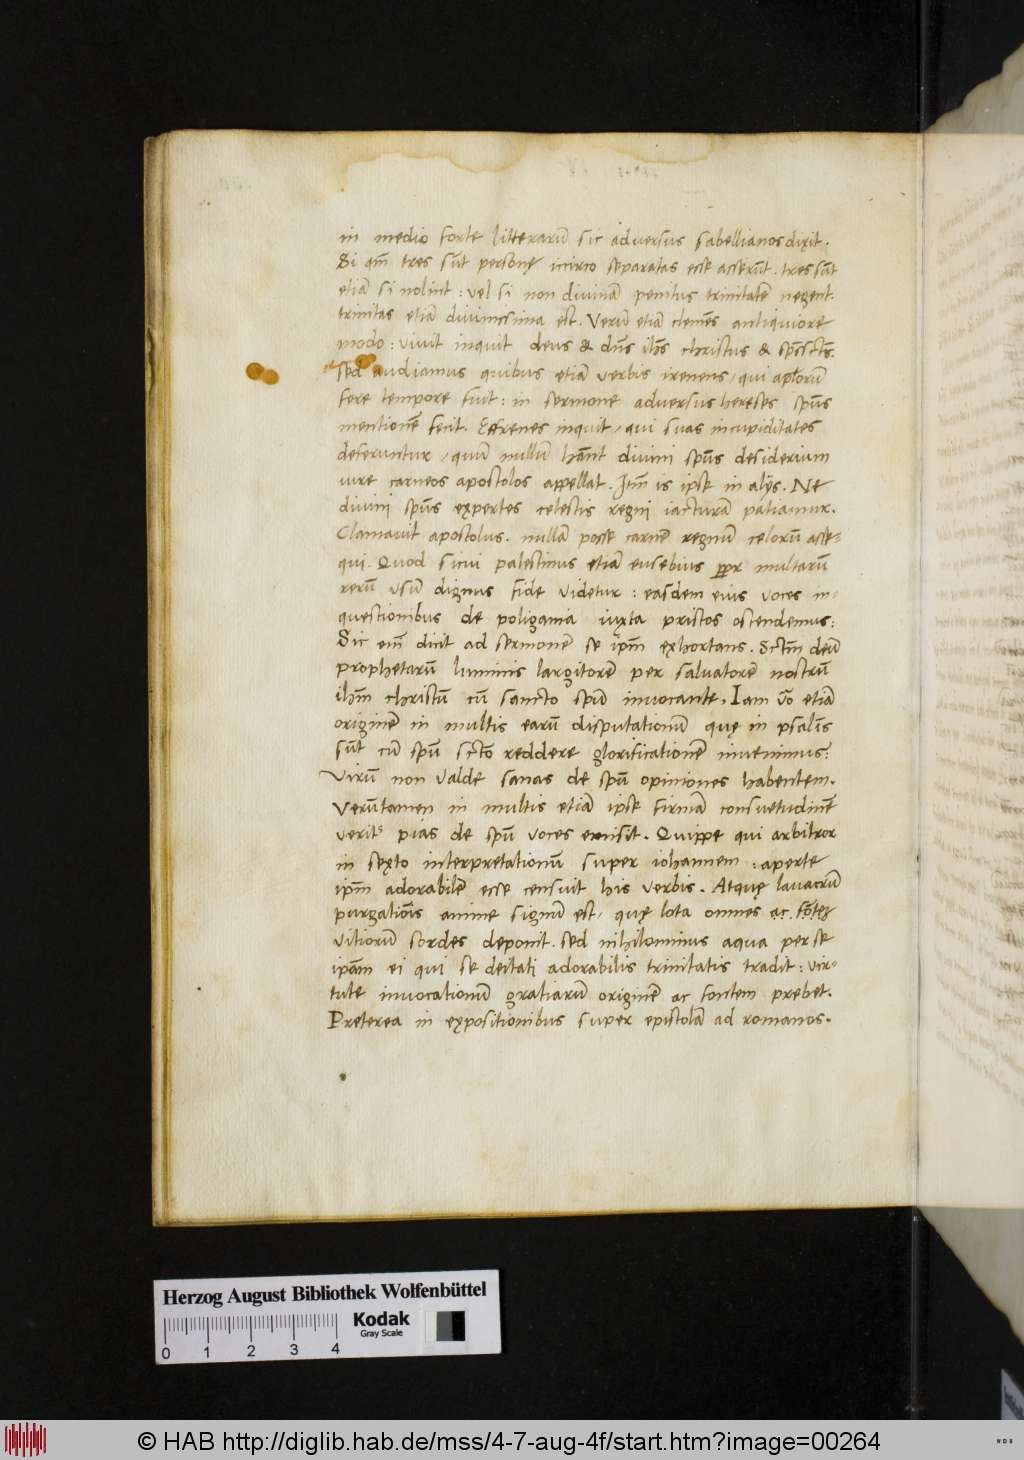 in medio forte litterarū sic adversus sabellianos dixit.
Si qm̄ tres sūt personę iccirco separatas esse asserūt. tres sūt
etiā si nolint : vel si non divinā penitus trinitatē negent.
trinitas etiā divinissima est. Verū etiā clemēs antiquiore
modo : vivit inquit deus & dn̄s ih̄s christus & sp̄s sctūs.
sed audiamus quibus etiā verbis ireneus, qui apl̄orū
fere tempore fuit : in sermone adversus hereses sp̄us
mentionē fecit. Effrenes inquit, qui suas in cupiditates
deferuntur, quū nullū hānt divini sp̄us desiderium
iure carneos apostolos appellat. Itm̄ is ipse in alijs. Ne
divini sp̄us expertes celestis regni iacturā patiamur.
Clamavit apostolus. nullā posse carnē regnū celorū asse-
qui. Quod sicui palestinus etiā eusebius ppr multarū
rerū usū dignus fide videtur : easdem eius voces in
questionibus de poligamia iuxta priscos ostendemus:
Sic em̄ dicit ad sermonē se ip̄m exhortans. Sctm̄ deū
prophetarū luminis largitorē per salvatorē nostrū
ih̄m christū cū sancto sp̄u invocante. Iam v̄o etiā
originē in multis earū disputationū quę in psalīs
sūt cū sp̄u sctō reddere glorificationē invenimus:
Virū non valde sanas de sp̄u opiniones habentem.
Verūtamen in multis etiā ipse firmā consuetudinē
verits pias de sp̄u voces emisit. Quippe qui arbitror
in sexto interpretationū super iohannem : aperte
ip̄m adorabilē esse censuit his verbis. Atque lavacrū
purgatiōis anime signū est, quę lota omnes ac
vitiorū sordes deponit. sed nihilominus aqua per se
ip̄am ei qui se deitati adorabilis trinitatis tradit : vir-
tute invocationū gratiarū originē ac fontem prebet.
Preterea in expositionibus super epistolā ad romanos.
Herzog August Bibliothek Wolfenbüttel
Kodak
Gray Scale
0 1 2 3 4
© HAB http://diglib.hab.de/mss/4-7-aug-4f/start.htm?image=00264